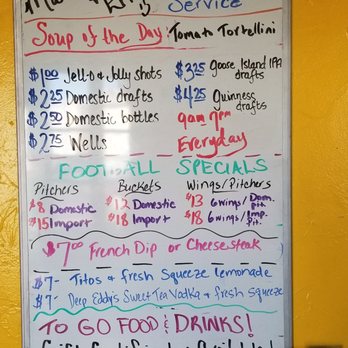 Service
Soup of the Day: Tomato Tortellini
$1.00 Jell-o & Jolly shots
$2.25 Domestic drafts
$2.50 Domestic bottles
$2.75 Wells
$3.25 Goose Island IPA drafts
$4.25 Guinness drafts
9am-7pm
Everyday
FOOTBALL SPECIALS
Pitchers
$8 Domestic
$15 Import
Buckets
$12 Domestic
$18 Import
Wings/Pitchers
$13 6wings/Dom. pit.
$18 6wings/Imp. Pit.
$7.00 French Dip or Cheesesteak
$7- Titos & fresh Squeeze lemonade
$7- Deep Eddy's Sweet Tea Vodka & fresh squeeze
TO GO FOOD & DRINKS!